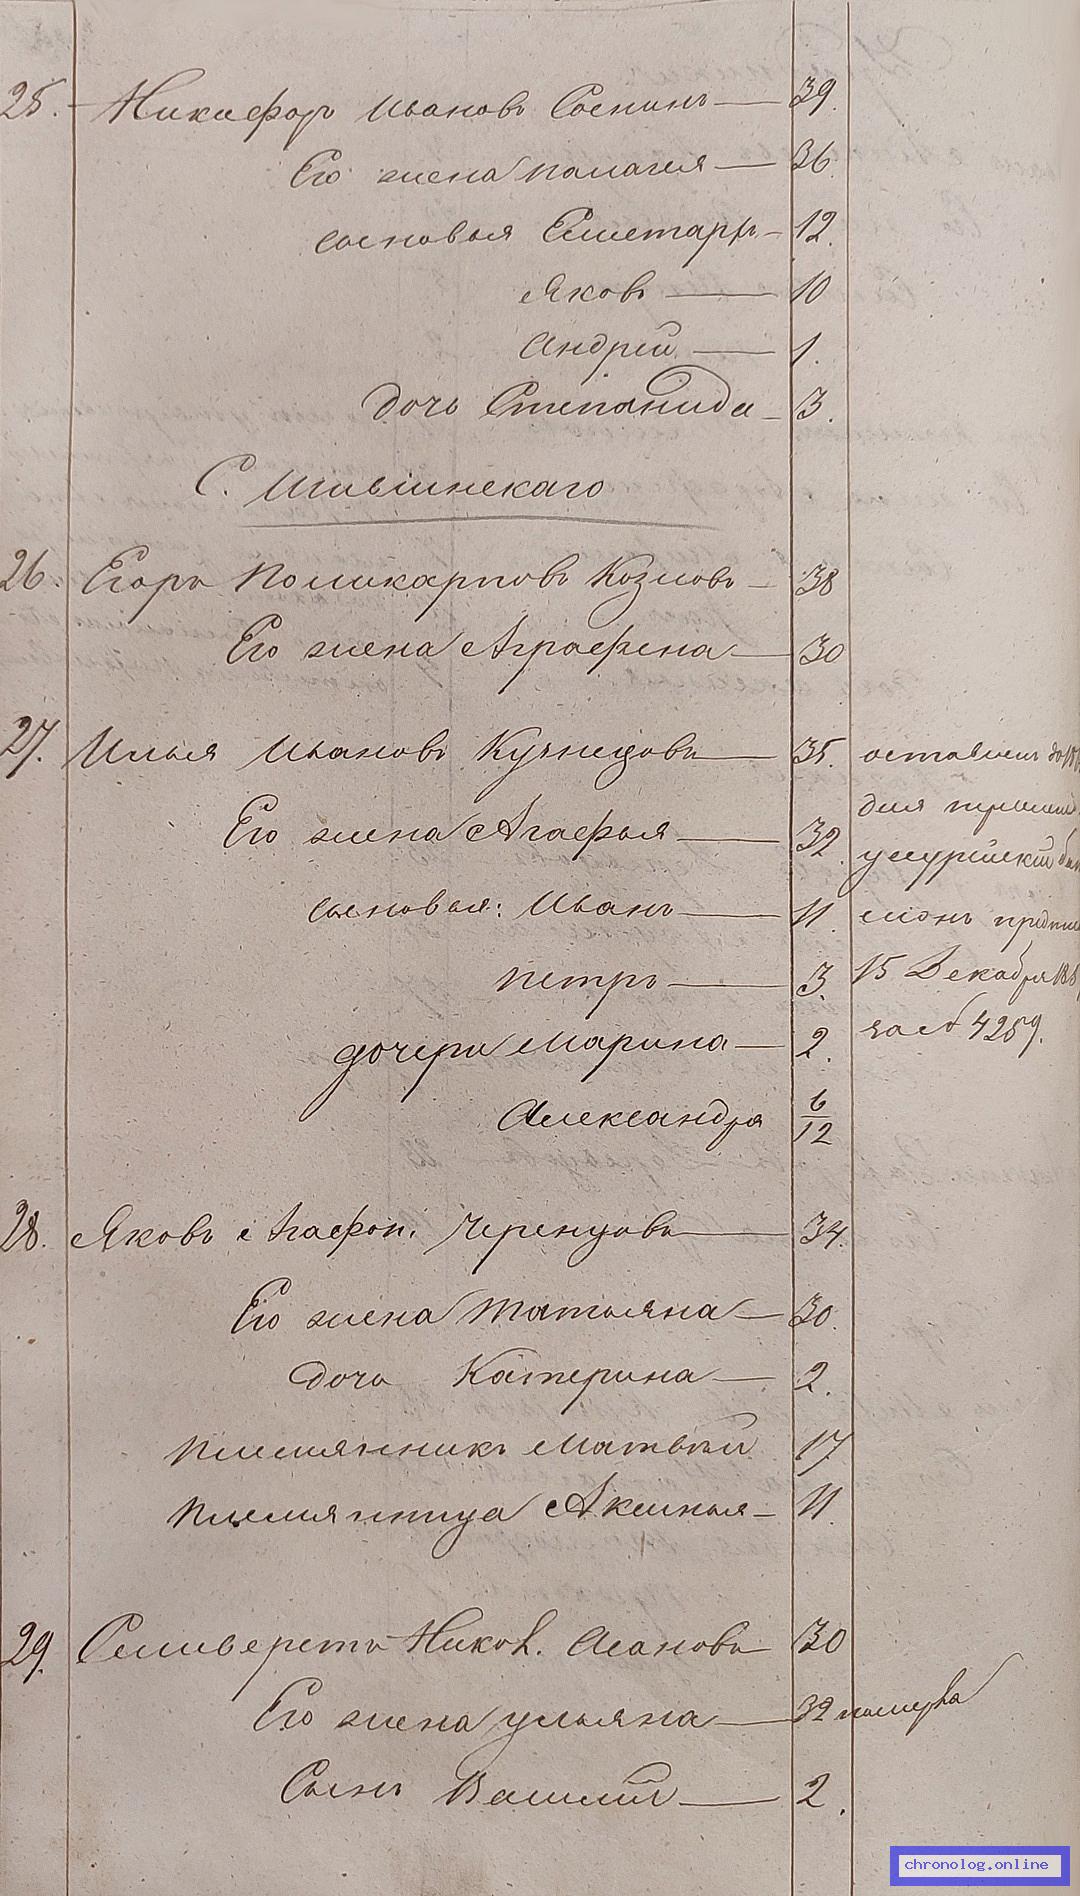 25. Никифоръ Ивановъ Соснинъ — 39.
Его жена Палагея — 36.
сыновья Елистаръ — 12.
Яковъ — 10
Андрей — 1.
дочь Степанида — 3.
С. Шившинскаго
26. Егоръ Поликарповъ Козловъ — 38
Его жена Аграфена — 30
27. Илья Ивановъ Кузнецовъ — 35. оставленъ до
Его жена Агафья — 32. для
сыновья: Иванъ — 11.
Петръ — 3. 15 Декабря
дочери Марина — 2. за № 4259.
Александра 6/12
28. Яковъ Агафон. Черенцовъ — 34.
Его жена Татьяна — 30.
дочь Катерина — 2.
племянникъ Матвѣй 17
племянница Аксинья — 11.
29. Селиверстъ Никон. Асановъ 30
Его жена ульяна — 32
Сынъ Василий — 2.
chronolog.online